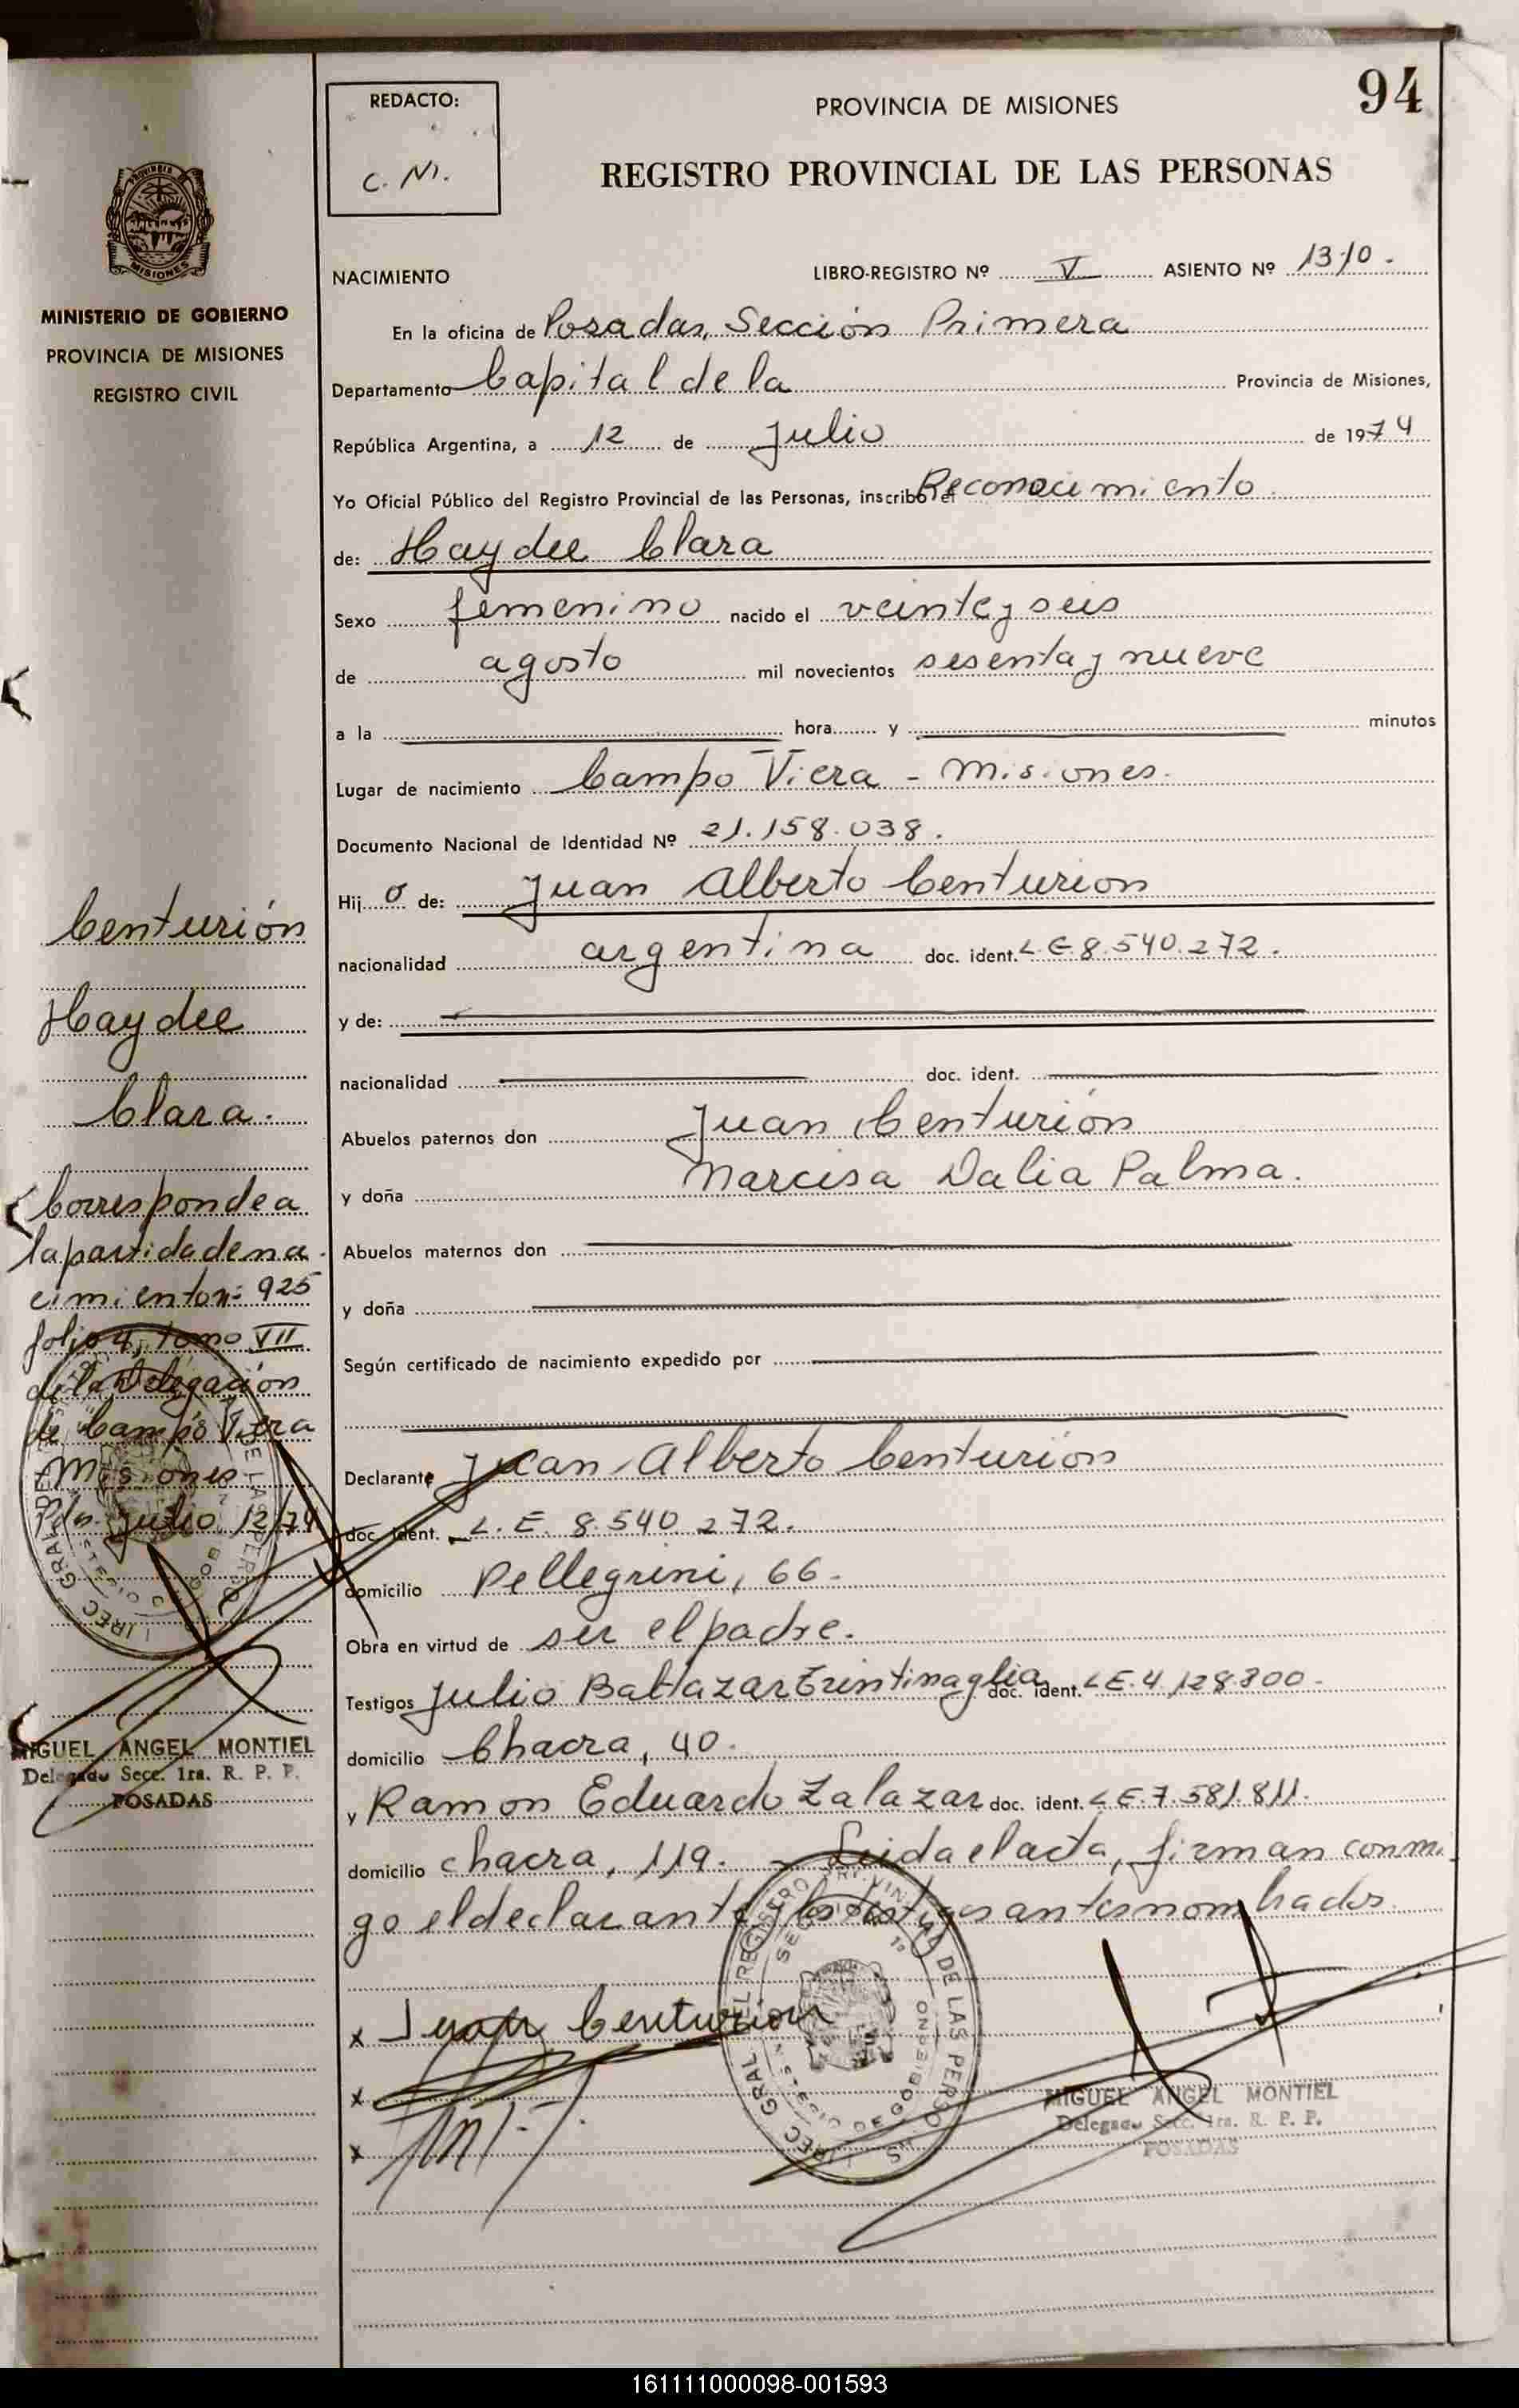 94
REDACTO:
C. M.
PROVINCIA DE MISIONES
REGISTRO PROVINCIAL DE LAS PERSONAS
PROVINCIA
MISIONES
MINISTERIO DE GOBIERNO
PROVINCIA DE MISIONES
REGISTRO CIVIL
NACIMIENTO LIBRO-REGISTRO Nº V ASIENTO Nº 1310.
En la oficina de Posadas, Sección Primera
Departamento Capital de la Provincia de Misiones,
República Argentina, a 12 de Julio de 1974
Yo Oficial Público del Registro Provincial de las Personas, inscribo el Reconocimiento
de: Haydee Clara
Sexo femenino nacido el veinte y seis
de agosto mil novecientos sesenta y nueve
a la hora y minutos
Lugar de nacimiento Campo Viera - Misiones.
Documento Nacional de Identidad Nº 21.158.038.
Hij o de: Juan Alberto Centurion
nacionalidad argentina doc. ident. L E 8.540.272.
y de:
nacionalidad doc. ident.
Abuelos paternos don Juan Centurión
y doña Narcisa Dalia Palma.
Abuelos maternos don
y doña
Según certificado de nacimiento expedido por
Declarante Juan Alberto Centurión
doc. ident. L. E. 8.540.272.
domicilio Pellegrini, 66.
Obra en virtud de ser el padre.
Testigos Julio Baltazar doc. ident. L E. 4.128.800.
domicilio Chacra, 40.
y Ramon Eduardo Zalazar doc. ident. L E. 7.581.811.
domicilio chacra, 119. - Leida el acta, firman conmi
go el declarante y los testigos antes nombrados.
x Juan Centurion
x
x
MIGUEL ANGEL MONTIEL
Delegado Secc. 1ra. R. P. P.
POSADAS
Centurión
Haydee
Clara.
Corresponde a
la partida de na
cimiento nº 925
folio 4, tomo VII
de la Delegación
de Campo Viera
Misiones
Pdas. Julio 12/74
MIGUEL ANGEL MONTIEL
Delegado Secc. 1ra. R. P. P.
POSADAS
161111000098-001593